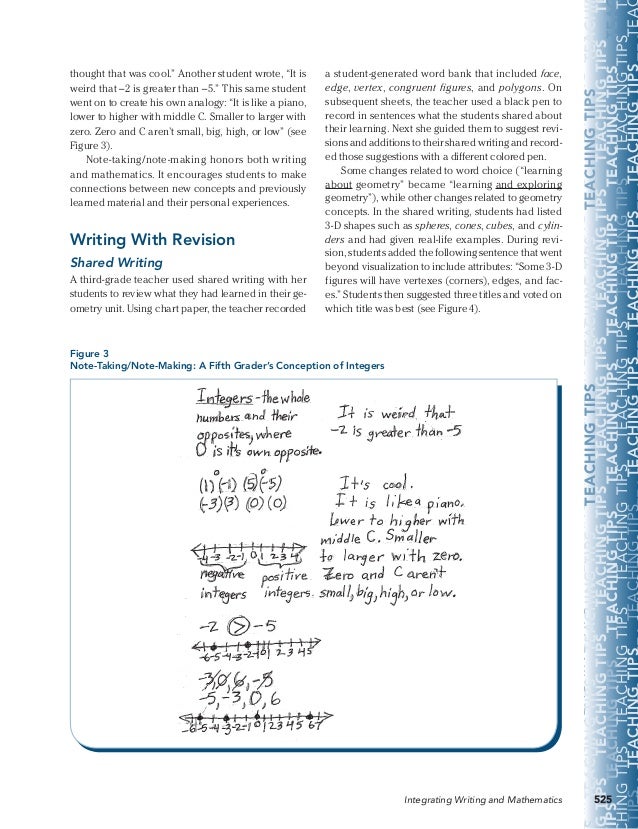 thought that was cool.” Another student wrote, “It is
weird that –2 is greater than –5.” This same student
went on to create his own analogy: “It is like a piano,
lower to higher with middle C. Smaller to larger with
zero. Zero and C aren’t small, big, high, or low” (see
Figure 3).
Note-taking/note-making honors both writing
and mathematics. It encourages students to make
connections between new concepts and previously
learned material and their personal experiences.
Writing With Revision
Shared Writing
A third-grade teacher used shared writing with her
students to review what they had learned in their ge-
ometry unit. Using chart paper, the teacher recorded
a student-generated word bank that included face,
edge, vertex, congruent figures, and polygons. On
subsequent sheets, the teacher used a black pen to
record in sentences what the students shared about
their learning. Next she guided them to suggest revi-
sions and additions to their shared writing and record-
ed those suggestions with a different colored pen.
Some changes related to word choice (“learning
about geometry” became “learning and exploring
geometry”), while other changes related to geometry
concepts. In the shared writing, students had listed
3-D shapes such as spheres, cones, cubes, and cylin-
ders and had given real-life examples. During revi-
sion, students added the following sentence that went
beyond visualization to include attributes: “Some 3-D
figures will have vertexes (corners), edges, and fac-
es.” Students then suggested three titles and voted on
which title was best (see Figure 4).
Figure 3
Note-Taking/Note-Making: A Fifth Grader’s Conception of Integers
Integers - the whole
numbers and their
opposites, where
0 is it's own opposite.
It is weird that
-2 is greater than -5
0 0
(1)(-1) (5)(-5)
(-3)(3) (0)(0)
It's cool.
It is like a piano.
Lower to higher with
middle C. Smaller
to larger with zero.
Zero and C aren't
small, big, high, or low.
-4 -3 -2 -1 0 1 2 3 4
negative positive
integers integers.
-2 > -5
-6 -5 -4 -3 -2 -1 0 1 2 3 4 5
-3, 0, 6, -5
-5, -3, 0, 6
-6 -5 -4 -3 -2 -1 0 1 2 3 4 5 6 7
Integrating Writing and Mathematics 525
TEACHING TIPS
TEACHING TIPS
TEACHING TIPS
TEACHING TIPS
TEACHING TIPS